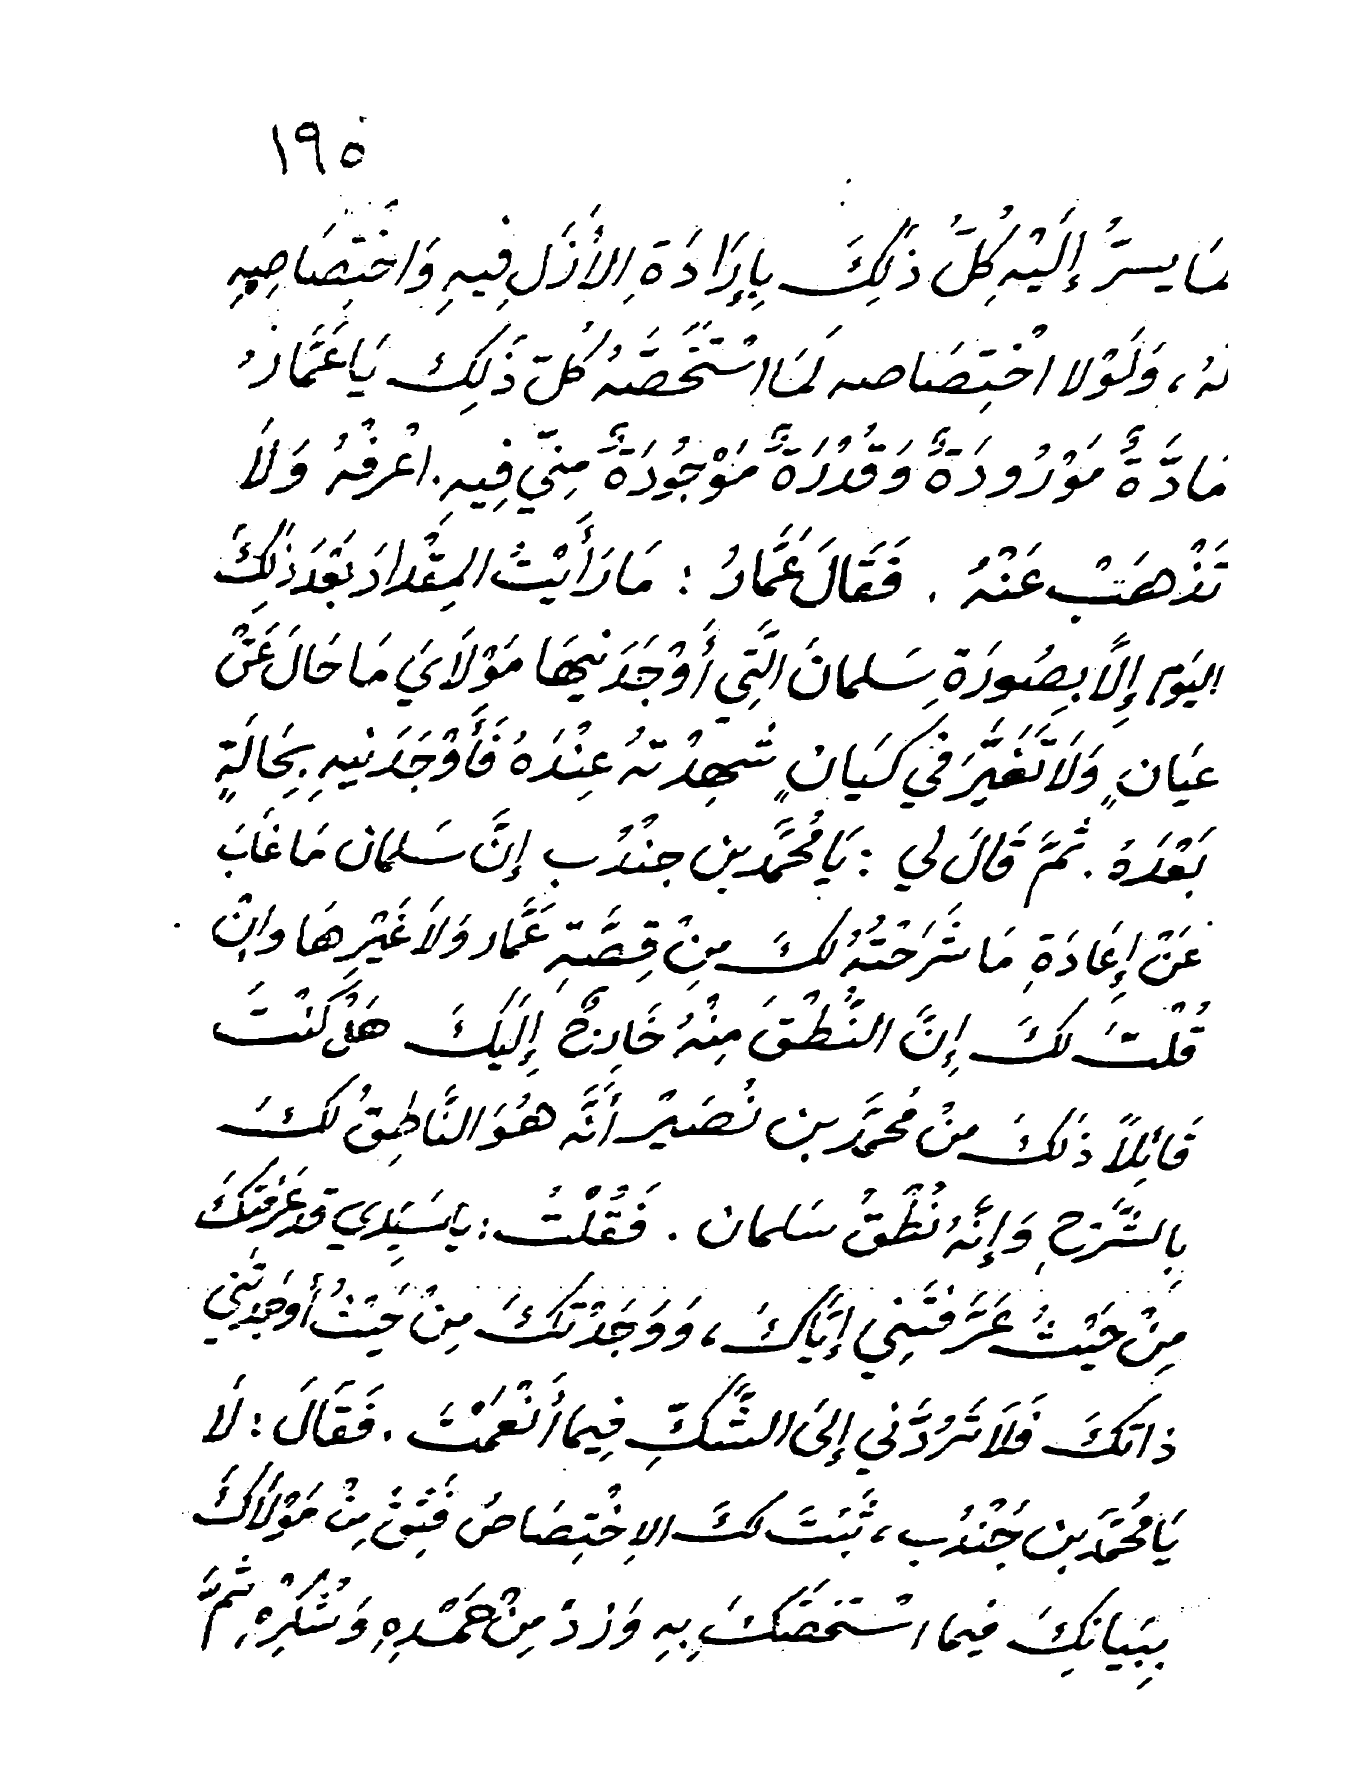 ١٩٥
لمَا يسرُّ إِلَيْهِ كُلُّ ذَلِكَ بِإِرَادَةِ الأَزَلِ فِيهِ وَاخْتِصَاصِهِ
لهُ، وَلَوْلا اخْتِصَاصه لَمَا اسْتَخَصَّهُ كُلّ ذَلِكَ يَا عَمَّارُ
مَادَّةٌ مَوْرُودَةٌ وَقُدْرَةٌ مَوْجُودَةٌ مِنِّي فِيهِ. اعْرِفْهُ وَلَا
تَذْهَبْ عَنْهُ. فَقَالَ عَمَّارُ: مَا رَأَيْتُ المِقْدَادَ بَعْدَ ذَلِكَ
اليَوْم إِلَّا بِصُورَةِ سَلمانَ الَّتِي أَوْجَدَنِيهَا مَوْلَايَ مَا حَالَ عَنْ
عيَانٍ وَلَا تَغَيَّرَ في كَيَانٍ شَهِدْتهُ عِنْدَهُ فَأَوْجَدَنيهِ بِحَالَةٍ
بَعْدَهُ. ثُمَّ قَالَ لي: يَا مُحَمَّد بن جنْدُب إِنَّ سَلمان مَا غَابَ
عَنْ إِعَادَةِ مَا شَرَحْتُهُ لكَ مِنْ قِصَّةِ عَمَّار وَلَا غَيْرِهَا وإنْ
قُلْتُ لكَ إِنَّ النُّطْقَ مِنْهُ خَارِجٌ إِلَيْكَ هَلْ كُنْتَ
قَائِلاً ذَلكَ مِنْ مُحَمَّد بن نُصَيْر أَنَّه هُوَ النَّاطِقُ لكَ
بِالشَّرْحِ وَإِنَّهُ نُطْقُ سَلمان. فَقُلْتُ: يا سَيِّدي قد عَرَفْتكَ
مِنْ حَيْثُ عَرَّفْتَنِي إِيَّاكَ، وَوَجَدْتكَ مِنْ حَيْثُ أَوْجَدتَني
ذاتكَ فَلَا تَرُدَّني إِلَى الشَّكِّ فِيما أَنْعَمْتَ. فَقَالَ: لَا
يَا مُحَمَّد بن جُنْدُب، ثَبَتَ لكَ الاِخْتِصَاصُ فَثِقْ مِنْ مَوْلَاكَ
بِبَيانِكَ فيما اسْتَخَصَّكَ بِهِ وَزِدْ مِنْ حَمْدِهِ وَشُكْرِهِ ثُمَّ